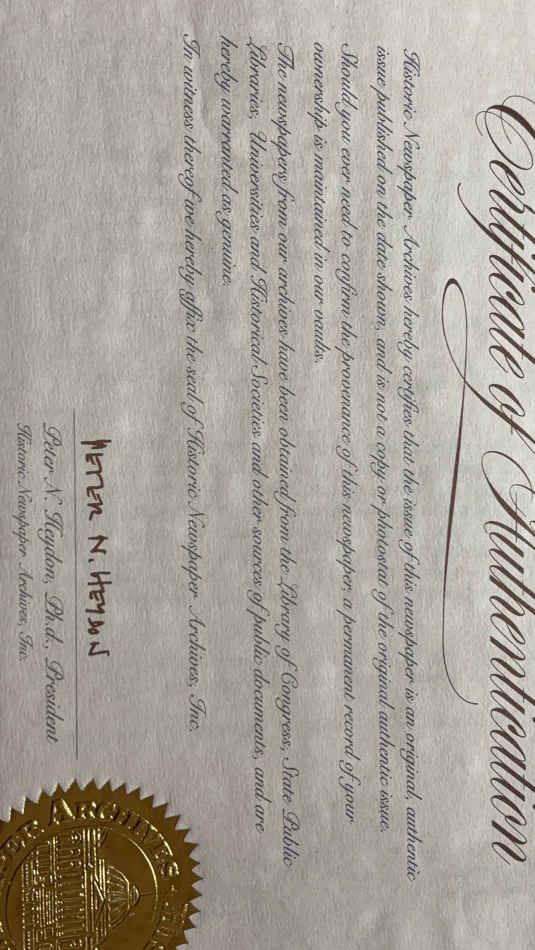 Certificate of Authentication
Historic Newspaper Archives hereby cerifies that the issue of this newspaper is an original, authentic
issue published on the date shown, and is not a copy or photostat of the original authentic issue.
Should you ever need to confirm the provenance of this newspaper, a permanent record of your
ownership is maintained in our vaults.
The newspapers from our archives have been obtained from the Library of Congress, State Public
Libraries, Universities and Historical Societies and other sources of public documents, and are
hereby warranted as genuine.
In witness thereof we hereby affix the seal of Historic Newspaper Archives, Inc.
PETER N. HEYDON
Peter N. Heydon, Ph.d., President
Historic Newspaper Archives, Inc.
ARCHIVES